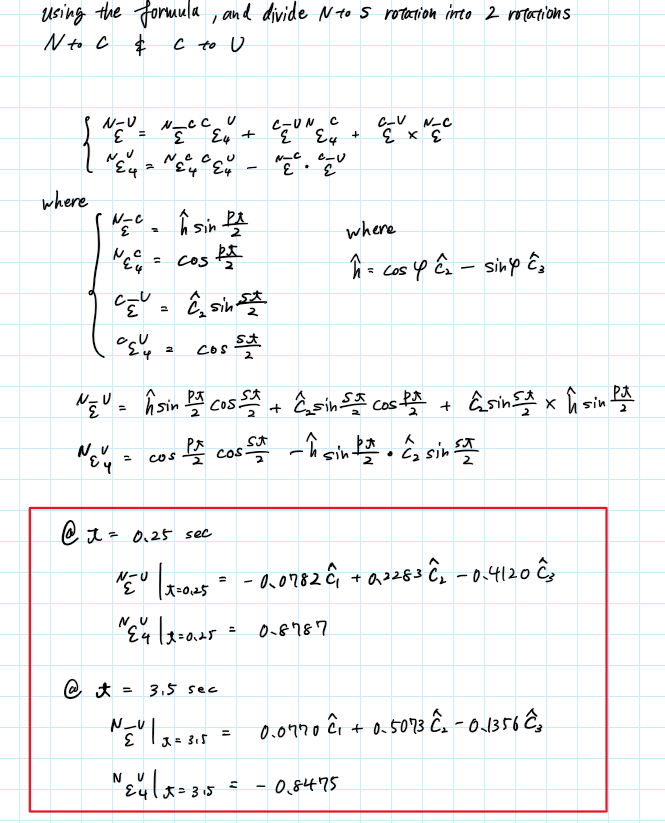 using the formula, and divide N to S rotation into 2 rotations
N to C & C to U
{ ᴺε̄ᵁ = ᴺε̄ᶜ ᶜε₄ᵁ + ᶜε̄ᵁ ᴺε₄ᶜ + ᶜε̄ᵁ × ᴺε̄ᶜ
ᴺε₄ᵁ = ᴺε₄ᶜ ᶜε₄ᵁ − ᴺε̄ᶜ · ᶜε̄ᵁ
where
{ ᴺε̄ᶜ = ĥ sin pt/2
ᴺε₄ᶜ = cos pt/2
ᶜε̄ᵁ = ĉ₂ sin st/2
ᶜε₄ᵁ = cos st/2
where
ĥ = cos φ ĉ₂ − sin φ ĉ₃
ᴺε̄ᵁ = ĥ sin pt/2 cos st/2 + ĉ₂ sin st/2 cos pt/2 + ĉ₂ sin st/2 × ĥ sin pt/2
ᴺε₄ᵁ = cos pt/2 cos st/2 − ĥ sin pt/2 · ĉ₂ sin st/2
@ t = 0.25 sec
ᴺε̄ᵁ |t=0.25 = −0.0782 ĉ₁ + 0.2283 ĉ₂ − 0.4120 ĉ₃
ᴺε₄ᵁ |t=0.25 = 0.8787
@ t = 3.5 sec
ᴺε̄ᵁ |t=3.5 = 0.0770 ĉ₁ + 0.5073 ĉ₂ − 0.1356 ĉ₃
ᴺε₄ᵁ |t=3.5 = −0.8475